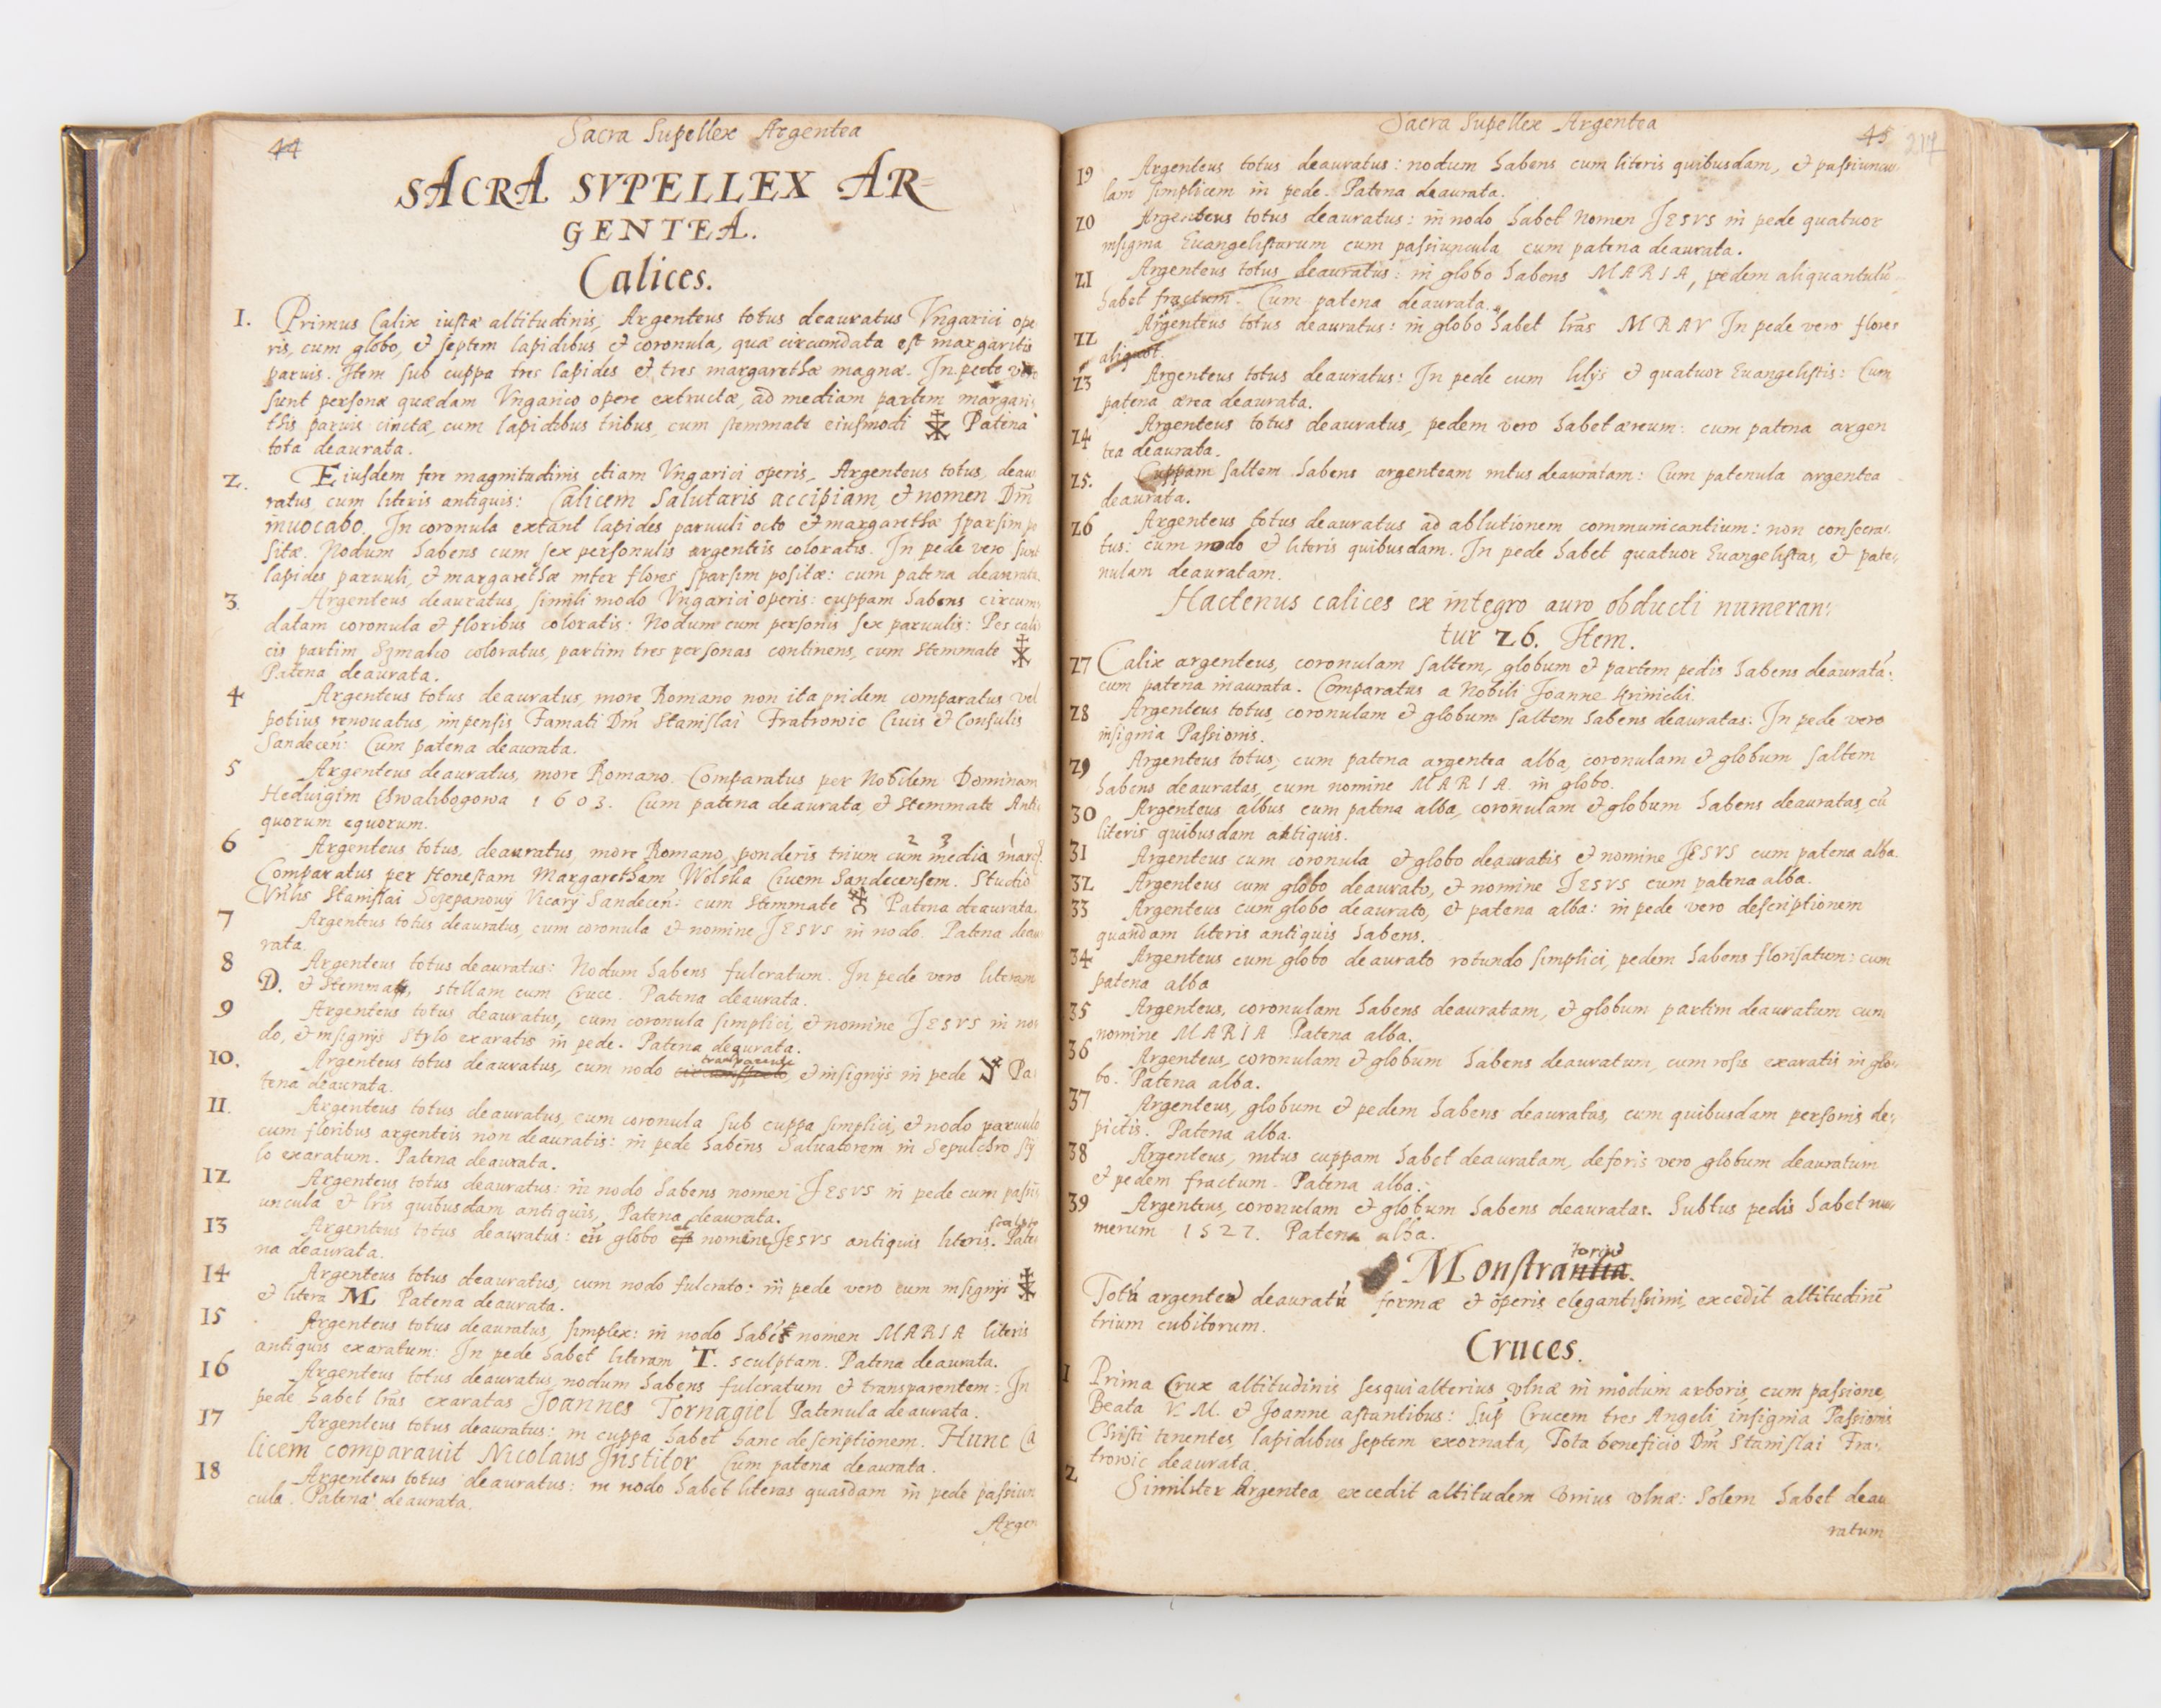 44
Sacra Supellex Argentea
SACRA SVPELLEX AR=
GENTEA.
Calices.
1. Primus Calix iustæ altitudinis, Argenteus totus deauratus Vngarici ope
ris, cum globo, et septem lapidibus et coronula, quæ circumdata est margaritis
paruis. Item sub cuppa tres lapides et tres margarethæ magnæ. In pede vero
sunt personæ quædam Vngarico opere extructæ, ad mediam partem margari
this paruis cinctæ, cum lapidibus tribus, cum stemmate eiusmodi Patena
tota deaurata.
2. Eiusdem fere magnitudinis etiam Vngarici operis, Argenteus totus, deau
ratus, cum literis antiquis: Calicem Salutaris accipiam, et nomen Dm̃
inuocabo. In coronula extant lapides paruuli octo et margarethæ sparsim po
sitæ. Nodum habens cum sex personulis argenteis coloratis. In pede vero sunt
lapides paruuli, et margarethæ inter flores sparsim positæ: cum patena deaurata.
3. Argenteus deauratus, simili modo Vngarici operis: cuppam habens circum
datam coronula et floribus coloratis: Nodum cum personis sex paruulis: Pes cali
cis partim, Szmalco coloratus, partim tres personas continens, cum stemmate
Patena deaurata.
4 Argenteus totus deauratus, more Romano non ita pridem comparatus vel
potius renouatus, impensis Famati Dm̃ Stanislai Fratrowic Ciuis et Consulis
Sandeceñ: Cum patena deaurata.
5 Argenteus deauratus, more Romano. Comparatus per Nobilem Dominam
Heduigim Chwalibogowa 1603. Cum patena deaurata, et stemmate Anti
quorum equorum.
6 Argenteus totus, deauratus, more Romano, ponderis trium cum 2 media 3 marc. 1
Comparatus per Honestam Margaretham Wolska Ciuem Sandecensem. Studio
Vrlis Stanislai Sczepanowy Vicary Sandeceñ: cum stemmate Patena deaurata.
7 Argenteus totus deauratus, cum coronula et nomine JESVS in nodo. Patena deau
rata.
8 Argenteus totus deauratus: Nodum habens fulcratum. In pede vero literam
D. et stemma, stellam cum Cruce. Patena deaurata.
9 Argenteus totus deauratus, cum coronula simplici, et nomine JESVS in no
do, et insignijs stylo exaratis in pede. Patena deaurata.
10. Argenteus totus deauratus, cum nodo transparente, et insignijs in pede Pa
tena deaurata.
11. Argenteus totus deauratus, cum coronula sub cuppa simplici, et nodo paruulo
cum floribus argenteis non deauratis: in pede habens Saluatorem in Sepulchro sty
lo exaratum. Patena deaurata.
12 Argenteus totus deauratus: in nodo habens nomen JESVS in pede cum passi
uncula et lr̃is quibusdam antiquis, Patena deaurata.
13 Argenteus totus deauratus: cũ globo et nomine JESVS antiquis literis. scalpto Pate
na deaurata.
14 Argenteus totus deauratus, cum nodo fulcrato: in pede vero cum insignijs
et litera M Patena deaurata.
15 Argenteus totus deauratus, simplex: in nodo habet nomen MARIA literis
antiquis exaratum: In pede habet literam T. sculptam. Patena deaurata.
16 Argenteus totus deauratus, nodum habens fulcratum et transparentem: In
pede habet lr̃as exaratas Joannes Tornagiel Patenula deaurata.
17 Argenteus totus deauratus: in cuppa habet hanc descriptionem. Hunc Ca
licem comparauit Nicolaus Institor Cum patena deaurata.
18 Argenteus totus deauratus: in nodo habet literas quasdam in pede passiun
cula. Patena deaurata.
Argen
Sacra Supellex Argentea
45
217
19 Argenteus totus deauratus: nodum habens cum literis quibusdam, et passiuncu
lam simplicem in pede. Patena deaurata.
20 Argenteus totus deauratus: in nodo habet nomen JESVS in pede quatuor
insignia Euangelistarum cum passiuncula cum patena deaurata.
21 Argenteus totus deauratus: in globo habens MARIA, pedem aliquantulũ
habet fractum. Cum patena deaurata.
22 Argenteus totus deauratus: in globo habet lr̃as MRAV In pede vero flores
aliquot.
23 Argenteus totus deauratus: In pede cum lilijs et quatuor Euangelistis: Cum
patena ærea deaurata.
24 Argenteus totus deauratus, pedem vero habet æreum: cum patena argen
tea deaurata.
25. Cuppam saltem habens argenteam intus deauratam: Cum patenula argentea
deaurata.
26 Argenteus totus deauratus ad ablutionem communicantium: non consecra
tus: cum nodo et literis quibusdam. In pede habet quatuor Euangelistas, et pate
nulam deauratam.
Hactenus calices ex integro auro obducti numeran:
tur 26. Item.
27 Calix argenteus, coronulam saltem, globum et partem pedis habens deauratã:
cum patena inaurata. Comparatus a Nobili Joanne Krinicki.
28 Argenteus totus, coronulam et globum saltem habens deauratas: In pede vero
insignia Passionis.
29 Argenteus totus, cum patena argentea alba, coronulam et globum saltem
habens deauratas, cum nomine MARIA in globo.
30 Argenteus albus cum patena alba, coronulam et globum habens deauratas, cũ
literis quibusdam antiquis.
31 Argenteus cum coronula et globo deauratis et nomine JESVS cum patena alba.
32 Argenteus cum globo deaurato, et nomine JESVS cum patena alba.
33 Argenteus cum globo deaurato, et patena alba: in pede vero descriptionem
quandam literis antiquis habens.
34 Argenteus cum globo deaurato rotundo simplici, pedem habens florisatum: cum
patena alba
35 Argenteus, coronulam habens deauratam, et globum partim deauratum cum
nomine MARIA Patena alba.
36 Argenteus, coronulam et globum habens deauratum, cum rosis exaratis in glo
bo. Patena alba.
37 Argenteus, globum et pedem habens deauratus, cum quibusdam personis de
pictis. Patena alba.
38 Argenteus, intus cuppam habet deauratam, deforis vero globum deauratum
et pedem fractum. Patena alba.
39 Argenteus, coronulam et globum habens deauratas. Subtus pedis habet nu
merum 1527. Patena alba.
Monstrantia. toriũ
Totũ argenteũ deauratũ formæ et operis elegantissimi, excedit altitudinẽ
trium cubitorum.
Cruces.
1 Prima Crux altitudinis sesquialterius vlnæ in modum arboris, cum passione,
Beata V. M. et Joanne astantibus: Sup̃ Crucem tres Angeli, insignia Passionis
Christi tenentes, lapidibus septem exornata, Tota beneficio Dm̃ Stanislai Fra
trowic deaurata.
2 Similiter Argentea excedit altitudem vnius vlnæ: Solem habet deau
ratum